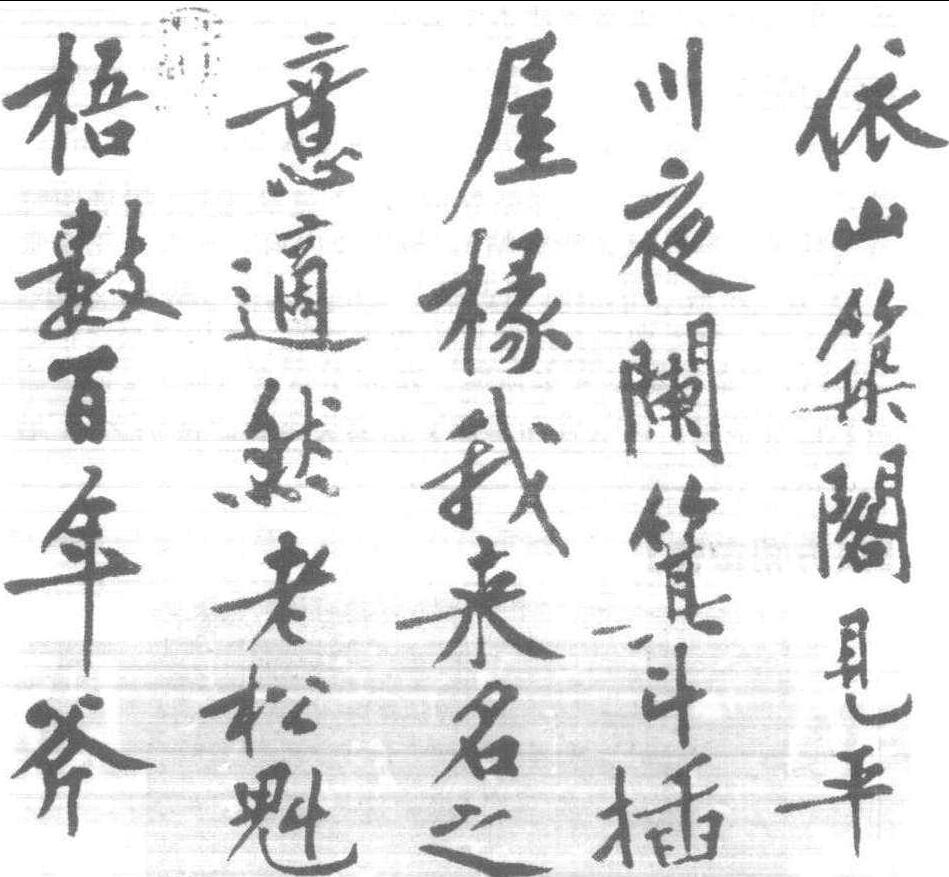 依山築閣見平
川夜闌箕斗插
屋椽我來名之
意適然老松魁
梧數百年斧